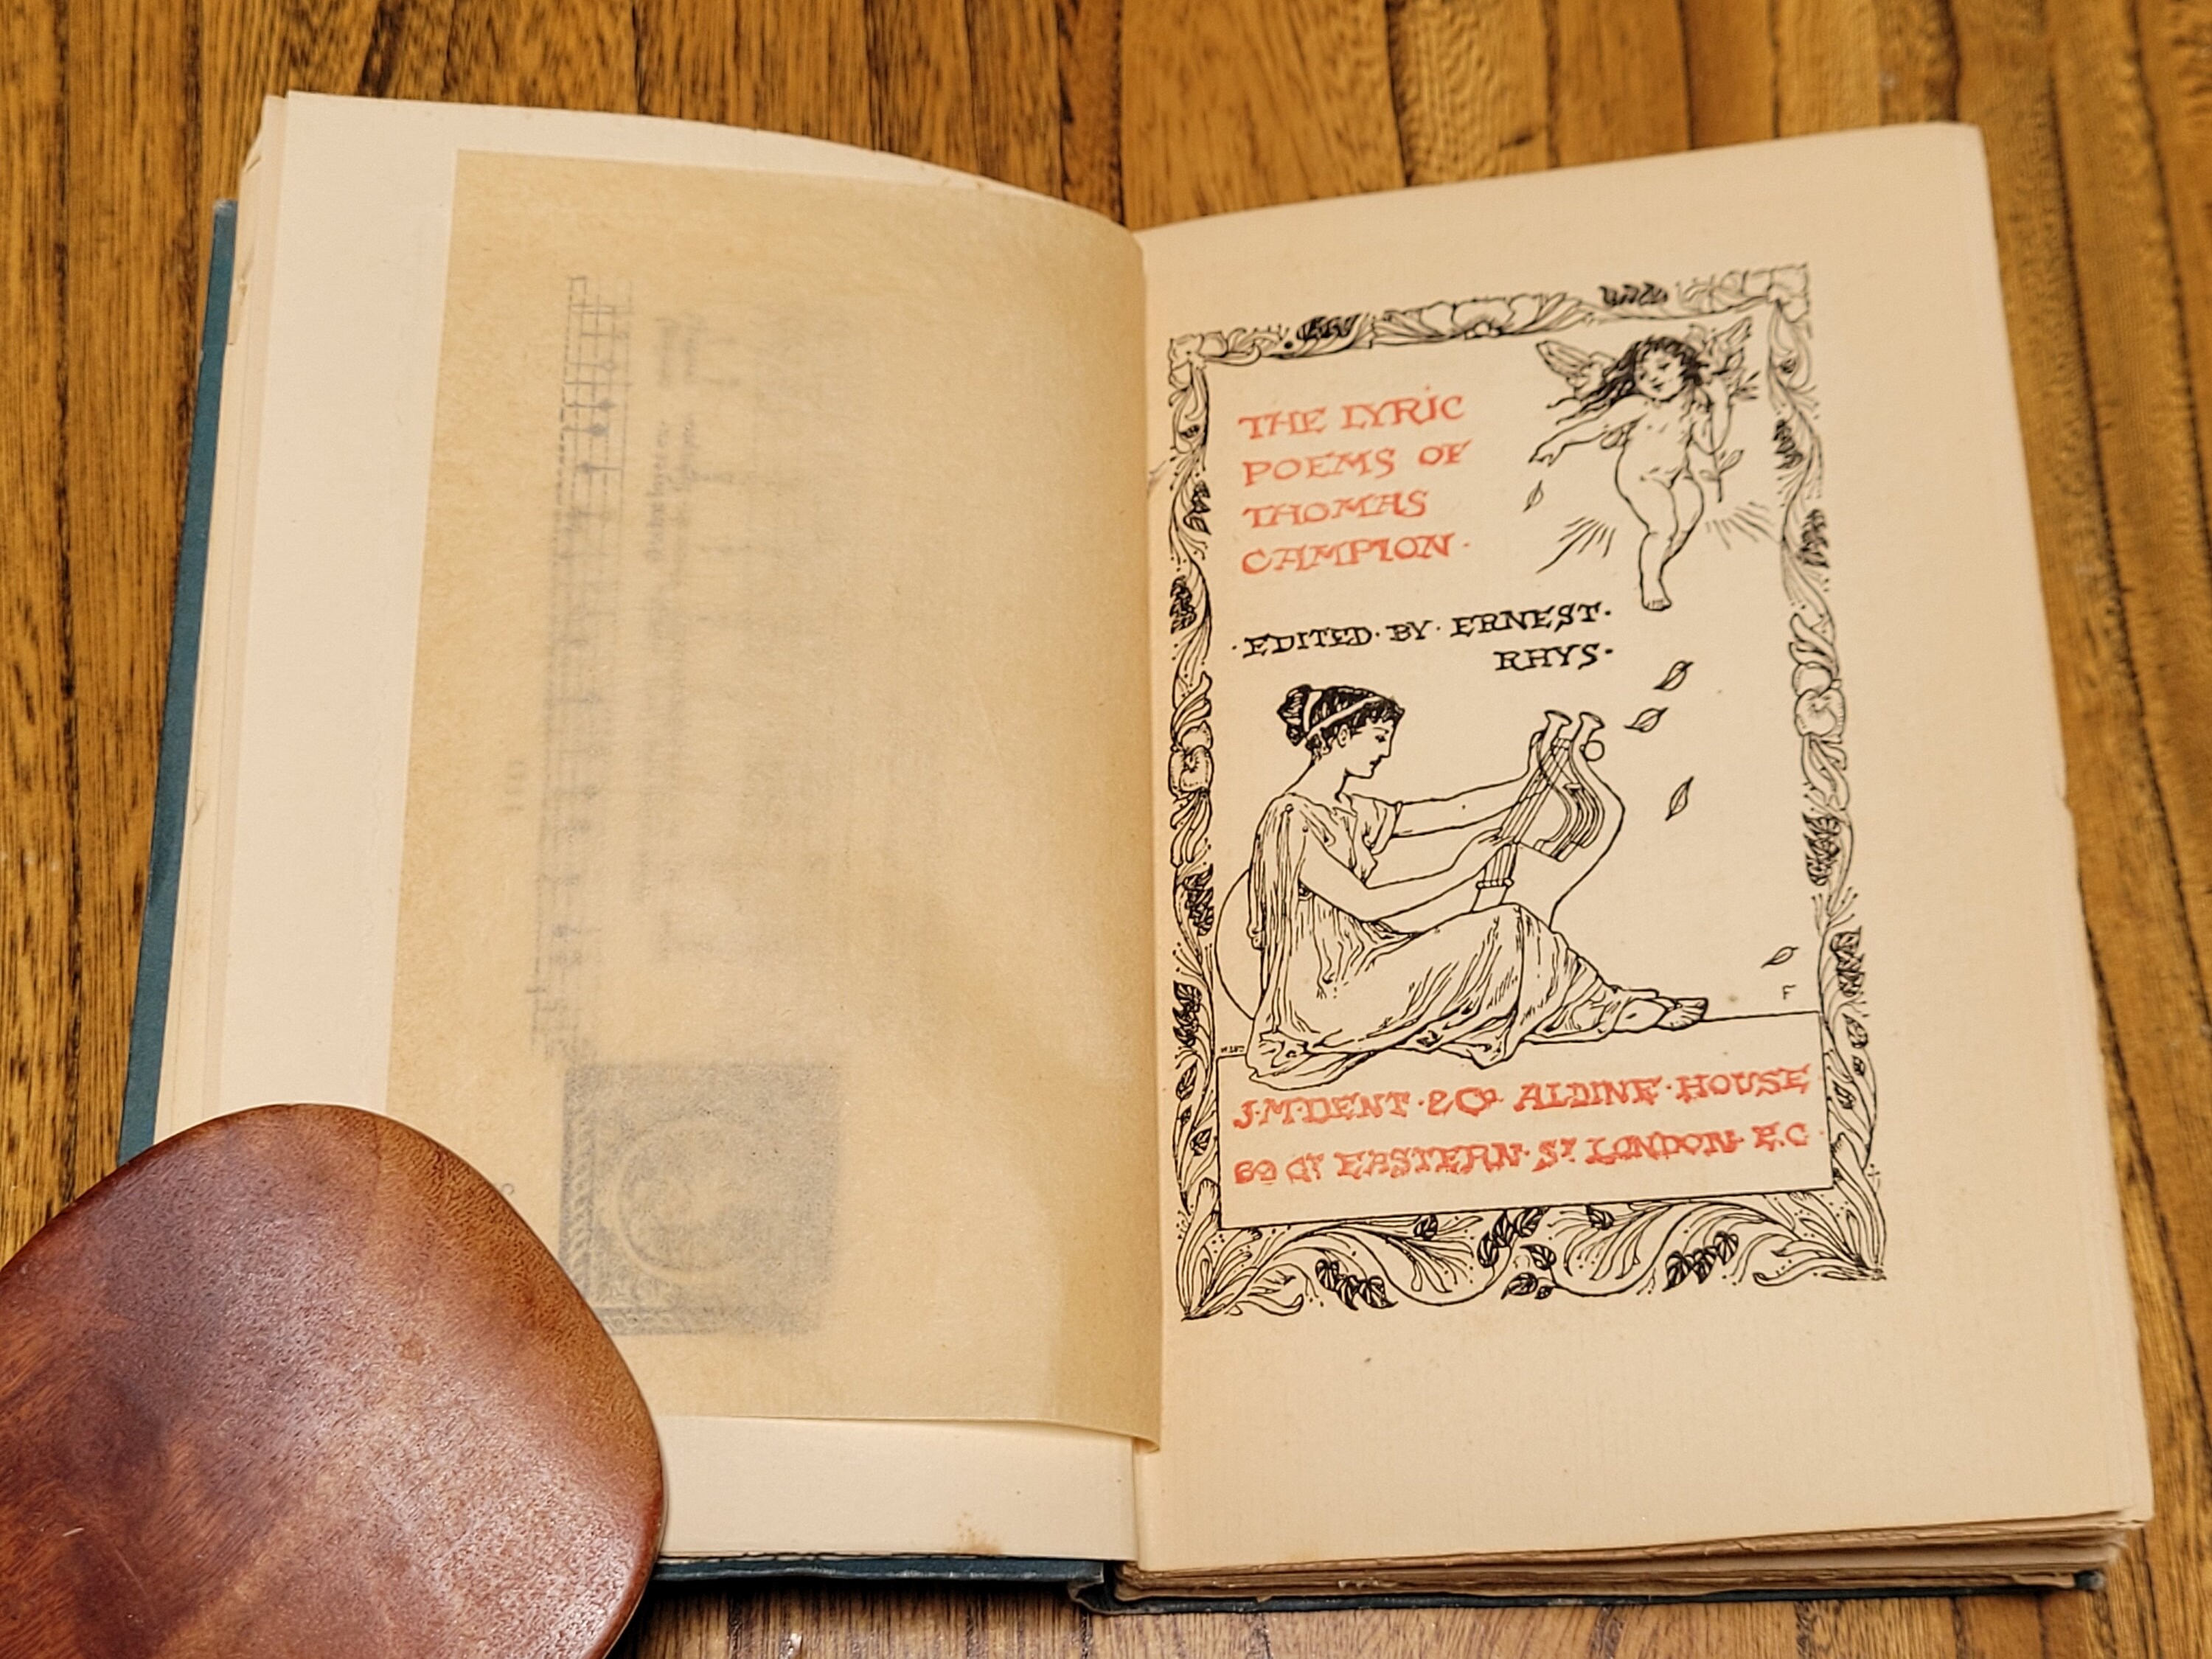 THE LYRIC
POEMS OF
THOMAS
CAMPION·
·EDITED·BY·ERNEST·
RHYS·
F
J·M·DENT·&Co. ALDINE·HOUSE
69 GT EASTERN·ST LONDON·E.C·